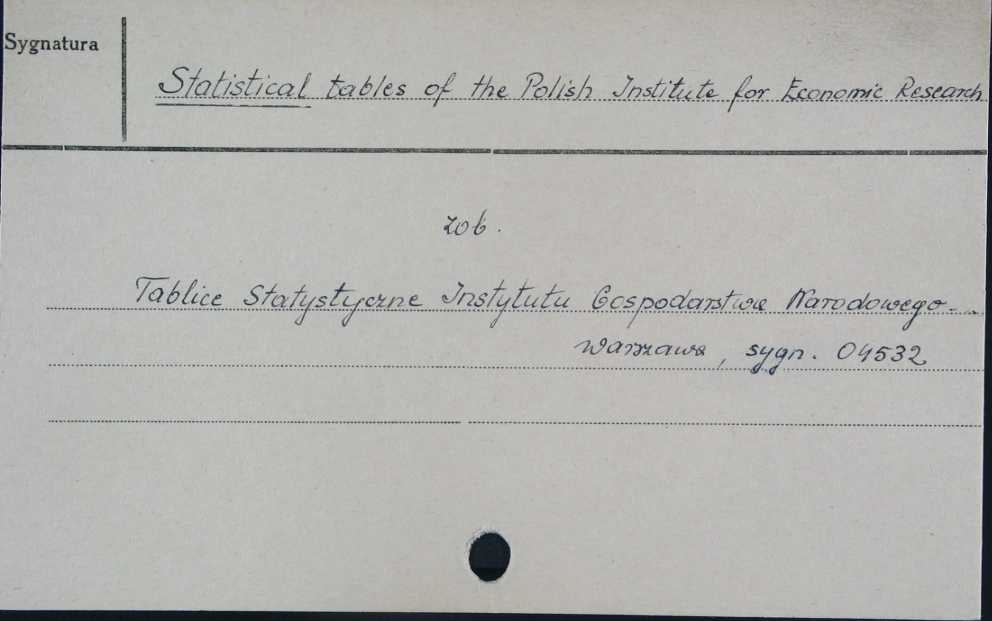 Sygnatura
Statistical tables of the Polish Institute for Economic Research
zob.
Tablice Statystyczne Instytutu Gospodarstwa Narodowego.
Warszawa, sygn. 04532